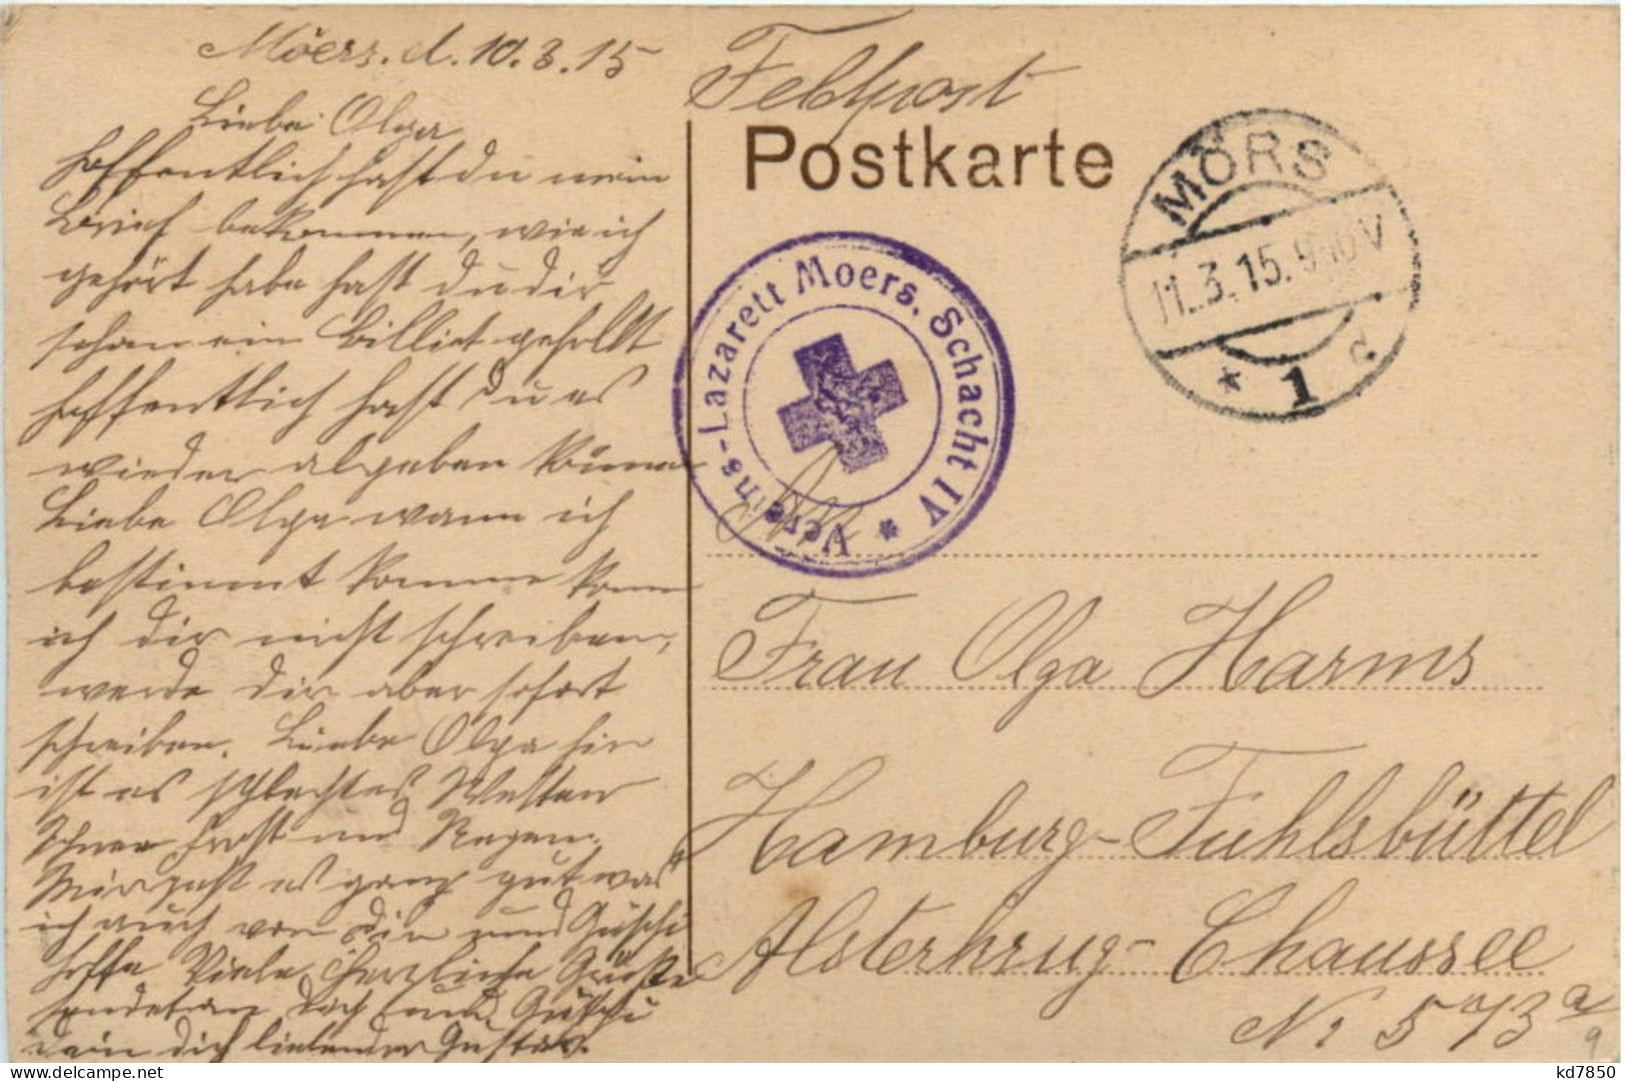 Möers. d. 10.3.15
Liebe Olga
hoffentlich hast du mein
Brief bekommen, wie ich
gehört habe hast du dir
schon ein Billiet gehollt
hoffentlich hast du es
wieder abgeben können
Liebe Olga wann ich
bestimmt komme kann
ich dir nicht schreiben,
werde dir aber sofort
schreiben. Liebe Olga hir
ist es schlechtes Wetter
Schnee Frost und Regen.
Mir geht es ganz gut was
ich auch von dir und Guschi
hoffe Viele Herzliche Grüße
sendet an dich und Guschi
dein dich liebender Gustav.
Feldpost
Postkarte
MÖRS
11.3.15.9-10V
* 1 c
Vereins-Lazarett Moers. Schacht IV *
Frau Olga Harms
Hamburg-Fuhlsbüttel
Alsterkrug-Chaussee
Nr 573 a/9
kd7850